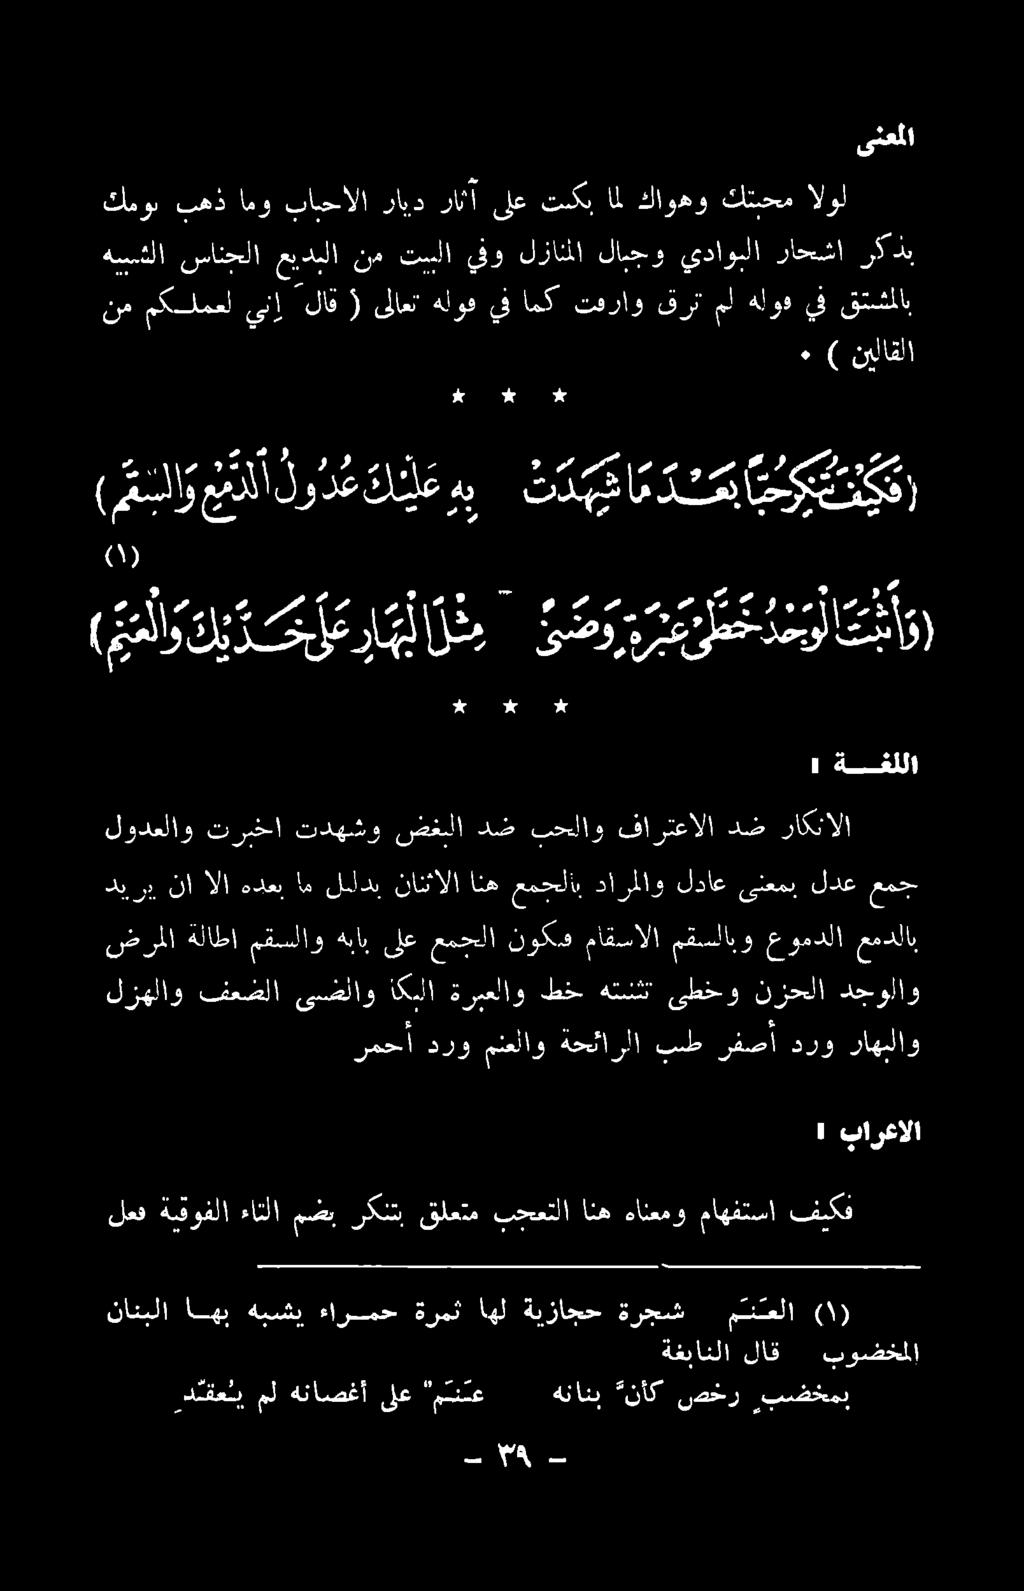 المعنى
لولا محبتك وهواك لما بكيت على آثار ديار الاحباب وما ذهب نومك
بذكر اشجار البوادي وجبال المنازل وفي البيت من البديع الجناس الشبيه
بالمشتق في قوله لم ترق وارقت كما في قوله تعالى ( قال إني لعملـكم من
القالين ) ٠
* * *
(فَكَيْفَ تُنْكِرُ حُبًّا بَعْـدَ مَا شَهِدَتْ بِهِ عَلَيْكَ عُدُولُ الدَّمْعِ وَالسَّقَمِ)
(١)
(وَأَثْبَتَ الْوَجْدُ خَطَّيْ عَبْرَةٍ وَضَنًى مِثْلَ الْبَهَارِ عَلَى خَـدَّيْكَ وَالْعَنَمِ)
* * *
اللغــة :
الانكار ضد الاعتراف والحب ضد البغض وشهدت اخبرت والعدول
جمع عدل بمعنى عادل والمراد بالجمع هنا الاثنان بدليل ما بعده الا ان يريد
بالدمع الدموع وبالسقم الاسقام فيكون الجمع على بابه والسقم اطالة المرض
والوجد الحزن وخطي تثنية خط والعبرة البكا والضنى الضعف والهزل
والبهار ورد أصفر طيب الرائحة والعنم ورد أحمر
الاعراب :
فكيف استفهام ومعناه هنا التعجب متعلق بتنكر بضم التاء الفوقية فعل
(١) العـَنـَم شجرة حجازية لها ثمرة حمـراء يشبه بهـا البنان
المخضوب قال النابغة
بمخضبٍ رخص كأنَّ بنانه عـَنـَم" على أغصانه لم يـُعقـَّدِ
- ٣٩ -